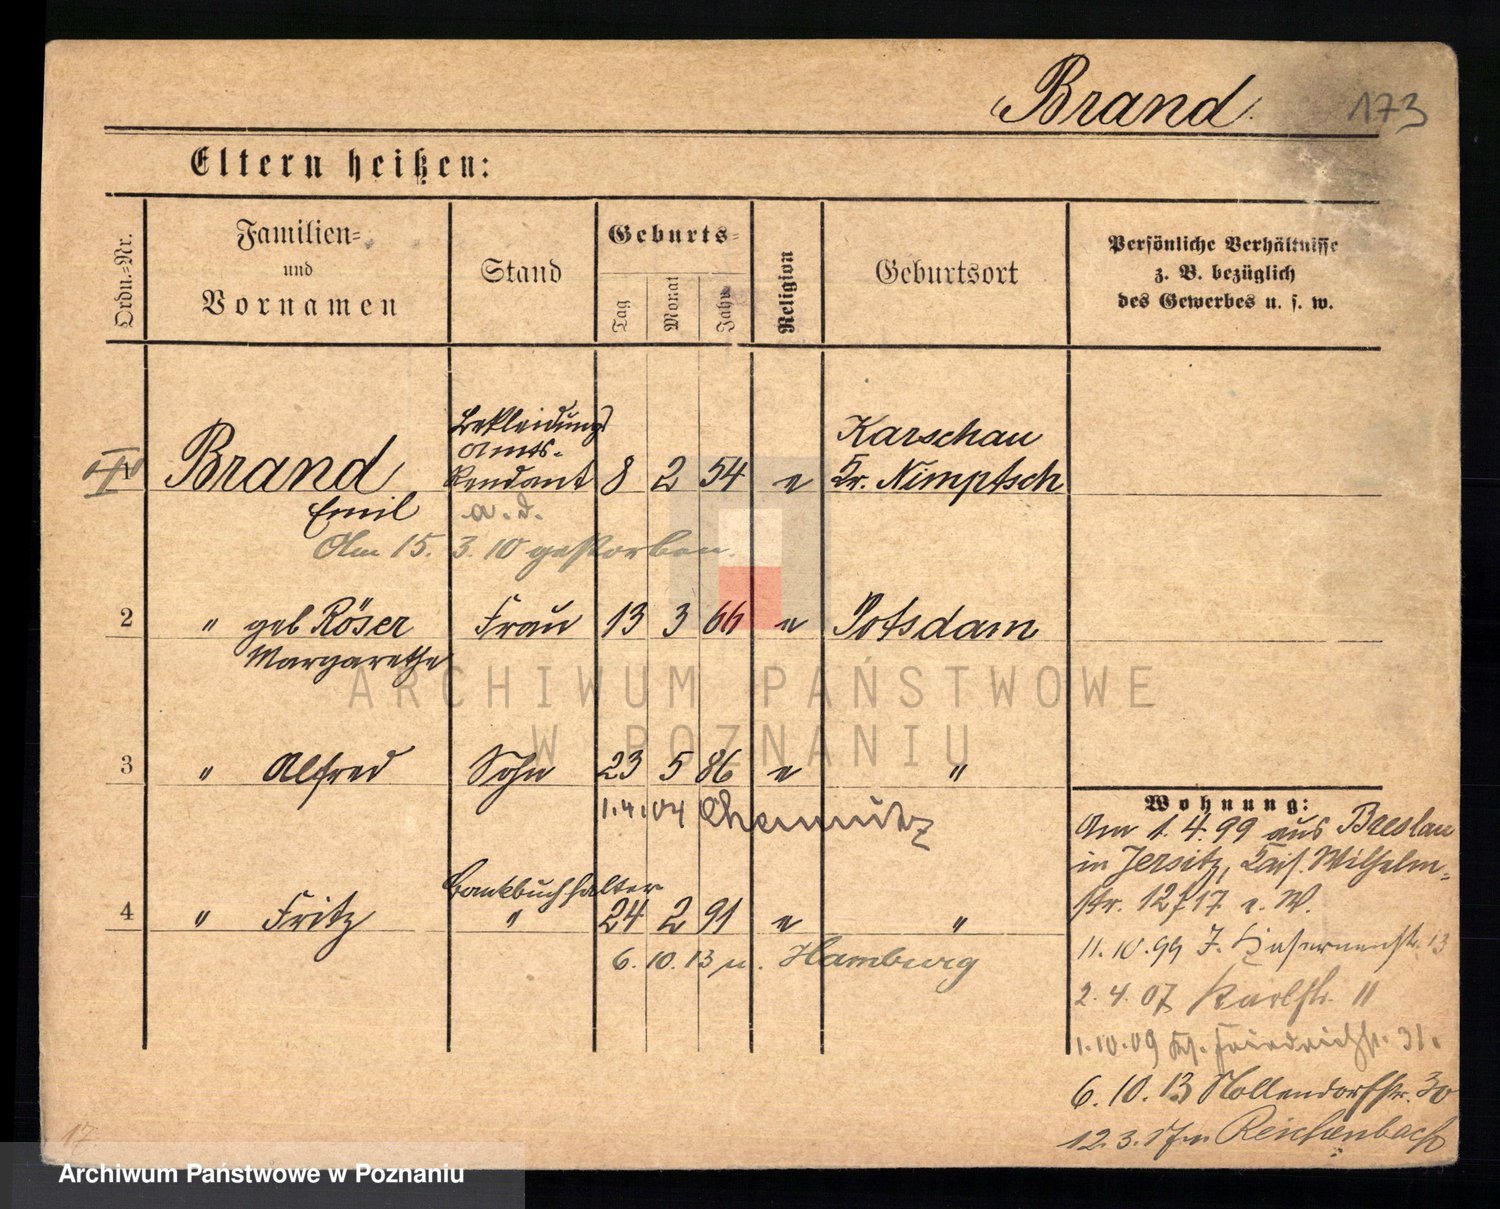 Brand
173
Eltern heißen:
Ordn.=Nr.
Familien=
und
Vornamen
Stand
Geburts=
Tag
Monat
Jahr
Religion
Geburtsort
Persönliche Verhältnisse
z. B. bezüglich
des Gewerbes u. s. w.
Brand
Emil
Bekleidungs
Amts-
Rendant
a. D.
8 2 54 e
Karschau
Kr. Nimptsch
Am 15. 3. 10 gestorben.
2 " geb Röser
Margarethe
Frau 13 3 66 e Potsdam
3 " Alfred Sohn 23 5 86 e "
1.4.04 Chemnitz
4 " Fritz
Bankbuchhalter
" 24 2 91 e "
6. 10. 13 n. Hamburg
Wohnung:
Am 1. 4. 99 aus Breslau
in Jersitz, Kais. Wilhelm-
str. 12/17 e. W.
11. 10. 99 J. Kasernenstr. 13
2. 4. 07 Karlstr. 11
1.10.09 Friedrichstr. 31.
6. 10. 13 Nollendorfstr. 30
12. 3. 17 n Reichenbach
17
ARCHIWUM PAŃSTWOWE
W POZNANIU
Archiwum Państwowe w Poznaniu